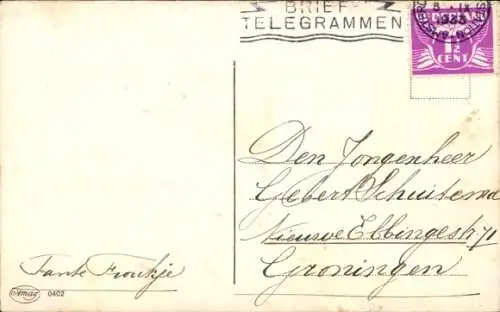 BRIEF-
TELEGRAMMEN
1933
1½
CENT
Den Jongenheer
Gebert Schuitema
Nieuwe Ebbingestr. 71
Groningen
Tante Froukje
0402